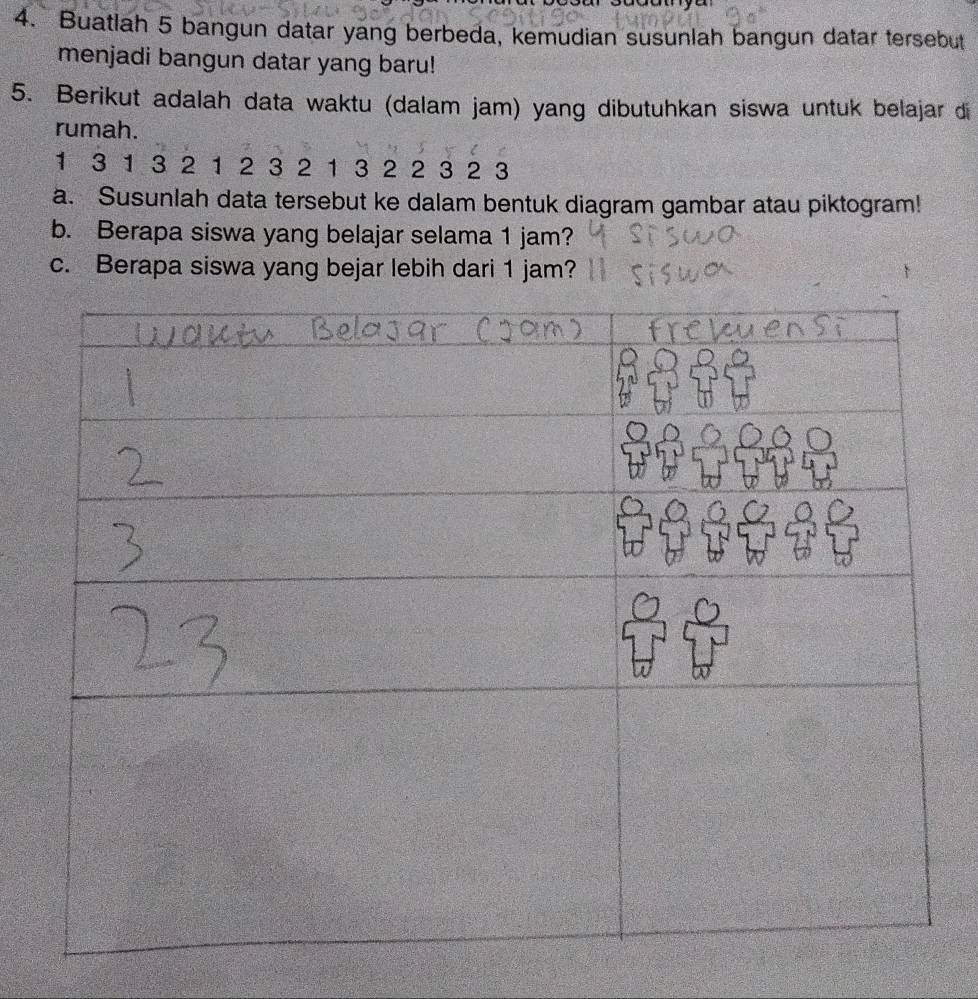 4. Buatlah 5 bangun datar yang berbeda, kemudian susunlah bangun datar tersebut
menjadi bangun datar yang baru!
5. Berikut adalah data waktu (dalam jam) yang dibutuhkan siswa untuk belajar di
rumah.
1 3 1 3 2 1 2 3 2 1 3 2 2 3 2 3
a. Susunlah data tersebut ke dalam bentuk diagram gambar atau piktogram!
b. Berapa siswa yang belajar selama 1 jam? 4 siswa
c. Berapa siswa yang bejar lebih dari 1 jam? 11 siswa
Waktu Belajar (Jam) frekuensi
1
2
3
23